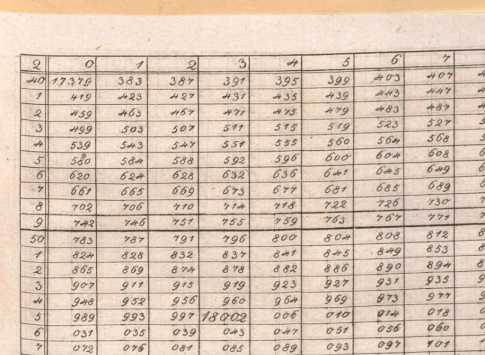 2 0 1 2 3 4 5 6 7
40 17379 383 387 391 395 399 403 407
1 419 423 427 431 435 439 443 447
2 459 463 467 471 475 479 483 487
3 499 503 507 511 515 519 523 527
4 539 543 547 551 555 560 564 568
5 580 584 588 592 596 600 604 608
6 620 624 628 632 636 641 645 649
7 661 665 669 673 677 681 685 689
8 702 706 710 714 718 722 726 730
9 742 746 751 755 759 763 767 771
50 783 787 791 796 800 804 808 812
1 824 828 832 837 841 845 849 853
2 865 869 874 878 882 886 890 894
3 907 911 915 919 923 927 931 935
4 948 952 956 960 964 969 973 977
5 989 993 997 18002 006 010 014 018
6 031 035 039 043 047 051 056 060
7 072 076 081 085 089 093 097 101